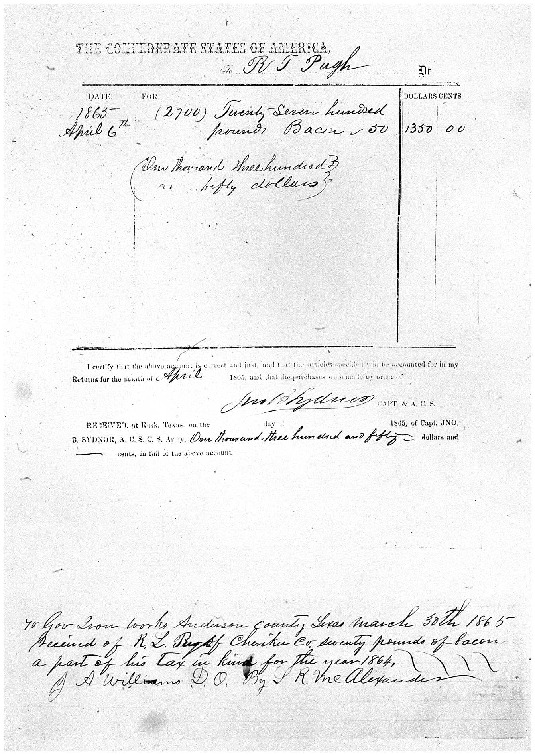 THE CONFEDERATE STATES OF AMERICA,
To R T Pugh Dr
DATE. FOR DOLLARS CENTS
1865
April 6th (2700) Twenty Seven hundred
pounds Bacon 50 1350 00
(One thousand three hundred &
fifty dollars)
I certify that the above account is correct and just, and that the articles to be accounted for in my
Returns for the month of April 1865, and that the purchases
Jno B Sydnor CAPT. & A. C. S.
RECEIVED, at Rusk, Texas, on the day 1865, of Capt. JNO.
B. SYDNOR, A. C. S. C. S. Army, One thousand three hundred and fifty dollars and
cents, in full of the above account.
To Gov Iron Works Anderson county Texas March 30th 1865
Received of R. L. Pugh of Cherikee Co, seventy pounds of bacon
a part of his tax in kind for the year 1864,
J A Williams D. O. By J R McAlexander